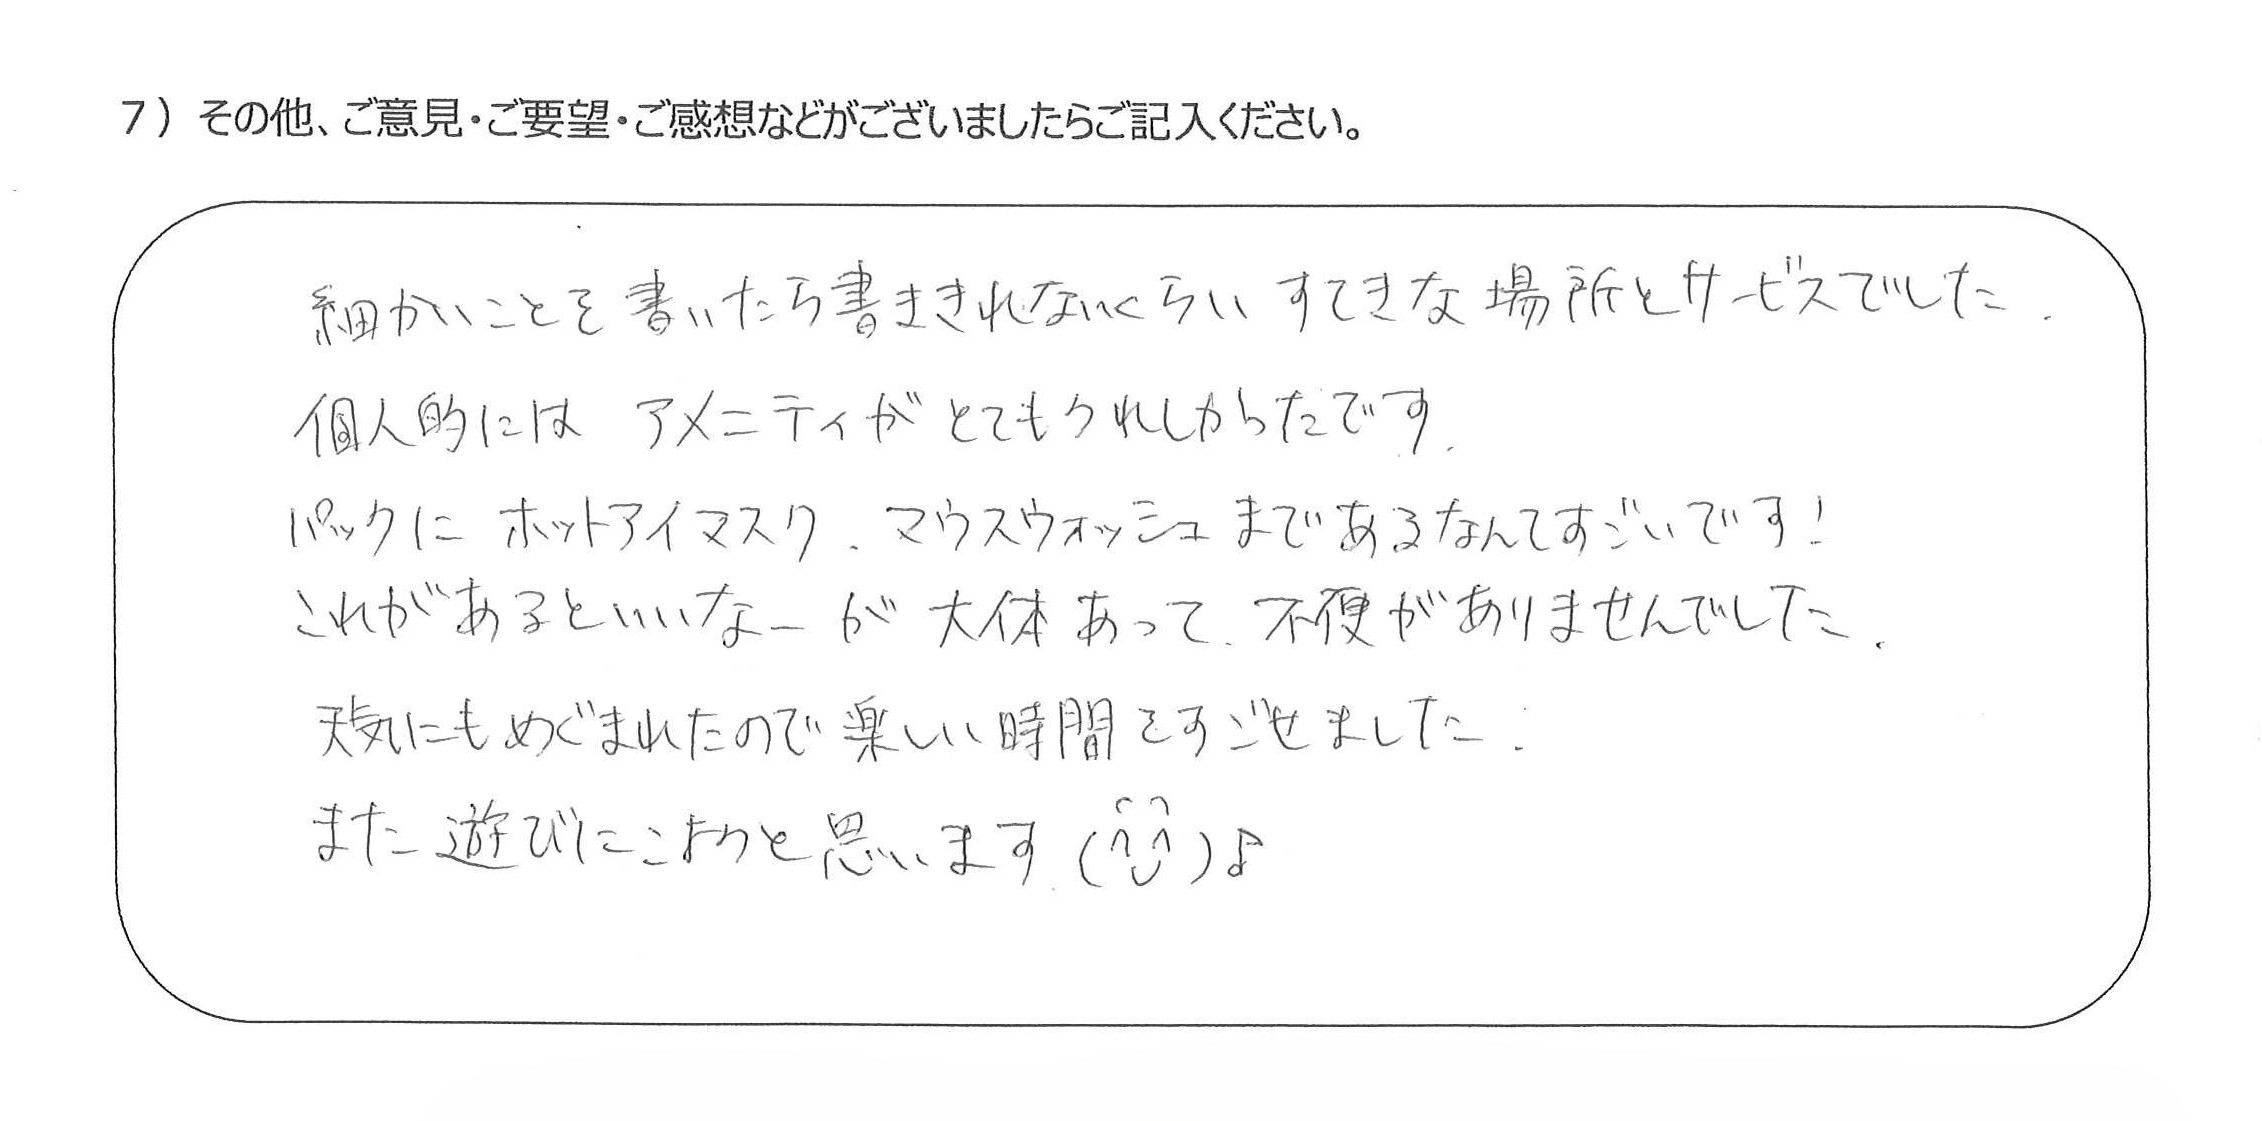 7）その他、ご意見・ご要望・ご感想などがございましたらご記入ください。
細かいことを書いたら書ききれないくらいすてきな場所とサービスでした.
個人的には アメニティがとてもうれしかったです.
パックに ホットアイマスク、マウスウォッシュまであるなんてすごいです!
これがあるといいなーが 大体あって、不便がありませんでした.
天気にもめぐまれたので楽しい時間をすごせました.
また遊びにこようと思います (^^)♪